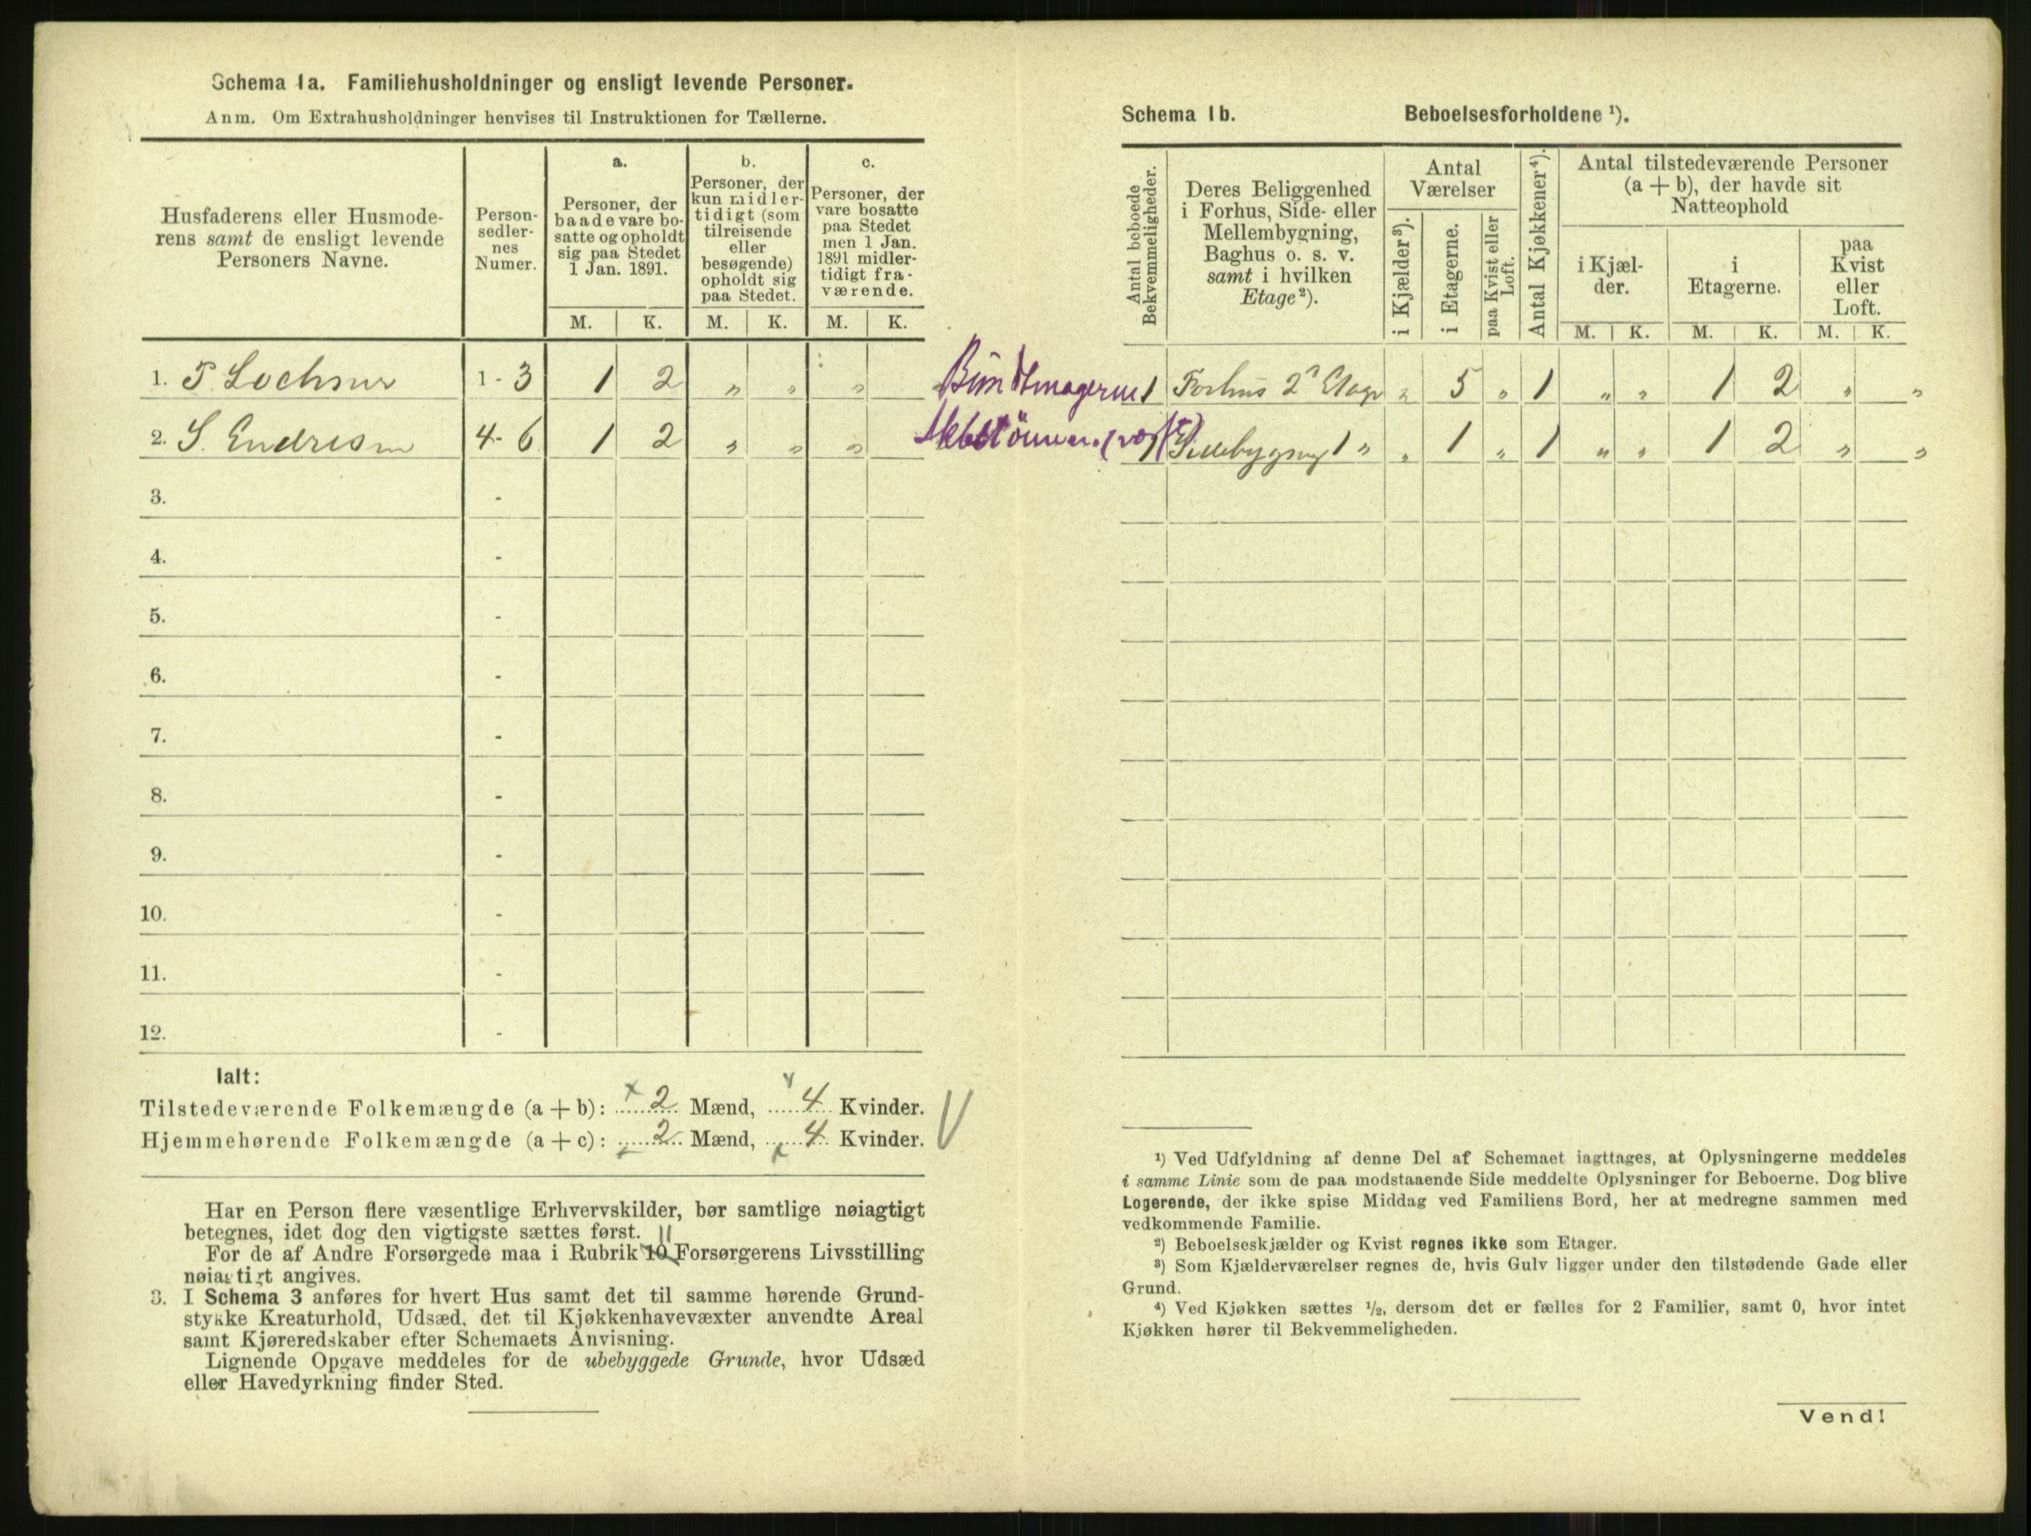 Schema 1a. Familiehusholdninger og ensligt levende Personer.
Anm. Om Extrahusholdninger henvises til Instruktionen for Tællerne.
Husfaderens eller Husmode-
rens samt de ensligt levende
Personers Navne.
Person-
sedler-
nes
Numer.
a.
Personer, der
baade vare bo-
satte og opholdt
sig paa Stedet
1 Jan. 1891.
b.
Personer, der
kun midler-
tidigt (som
tilreisende
eller
besøgende)
opholdt sig
paa Stedet.
c.
Personer, der
vare bosatte
paa Stedet
men 1 Jan.
1891 midler-
tidigt fra-
værende.
M. K. M. K. M. K.
1. P. Lochsner 1 - 3 1 2 " " "
2. S. Endresen 4 - 6 1 2 " " "
3. -
4. -
5. -
6. -
7. -
8. -
9. -
10. -
11. -
12. -
Ialt:
Tilstedeværende Folkemængde (a + b): 2 Mænd, 4 Kvinder.
Hjemmehørende Folkemængde (a + c): 2 Mænd, 4 Kvinder.
Har en Person flere væsentlige Erhvervskilder, bør samtlige nøiagtigt
betegnes, idet dog den vigtigste sættes først.
11
For de af Andre Forsørgede maa i Rubrik 10 Forsørgerens Livsstilling
nøiagtigt angives.
3. I Schema 3 anføres for hvert Hus samt det til samme hørende Grund-
stykke Kreaturhold, Udsæd, det til Kjøkkenhavevæxter anvendte Areal
samt Kjøreredskaber efter Schemaets Anvisning.
Lignende Opgave meddeles for de ubebyggede Grunde, hvor Udsæd
eller Havedyrkning finder Sted.
Schema 1b. Beboelsesforholdene ¹).
Antal beboede
Bekvemmeligheder.
Deres Beliggenhed
i Forhus, Side- eller
Mellembygning,
Baghus o. s. v.
samt i hvilken
Etage²).
Antal
Værelser
i Kjælder³).
i Etagerne.
paa Kvist eller
Loft.
Antal Kjøkkener⁴).
Antal tilstedeværende Personer
(a + b), der havde sit
Natteophold
i Kjæl-
der.
i
Etagerne.
paa
Kvist
eller
Loft.
M. K. M. K. M. K.
Buntmagerne 1 Forhus 2' Etage " 5 " 1 " " 1 2 " "
1 Sidebygning 1 " " 1 " 1 " " 1 2 " "
¹) Ved Udfyldning af denne Del af Schemaet iagttages, at Oplysningerne meddeles
i samme Linie som de paa modstaaende Side meddelte Oplysninger for Beboerne. Dog blive
Logerende, der ikke spise Middag ved Familiens Bord, her at medregne sammen med
vedkommende Familie.
²) Beboelseskjælder og Kvist regnes ikke som Etager.
³) Som Kjælderværelser regnes de, hvis Gulv ligger under den tilstødende Gade eller
Grund.
⁴) Ved Kjøkken sættes ½, dersom det er fælles for 2 Familier, samt 0, hvor intet
Kjøkken hører til Bekvemmeligheden.
Vend!